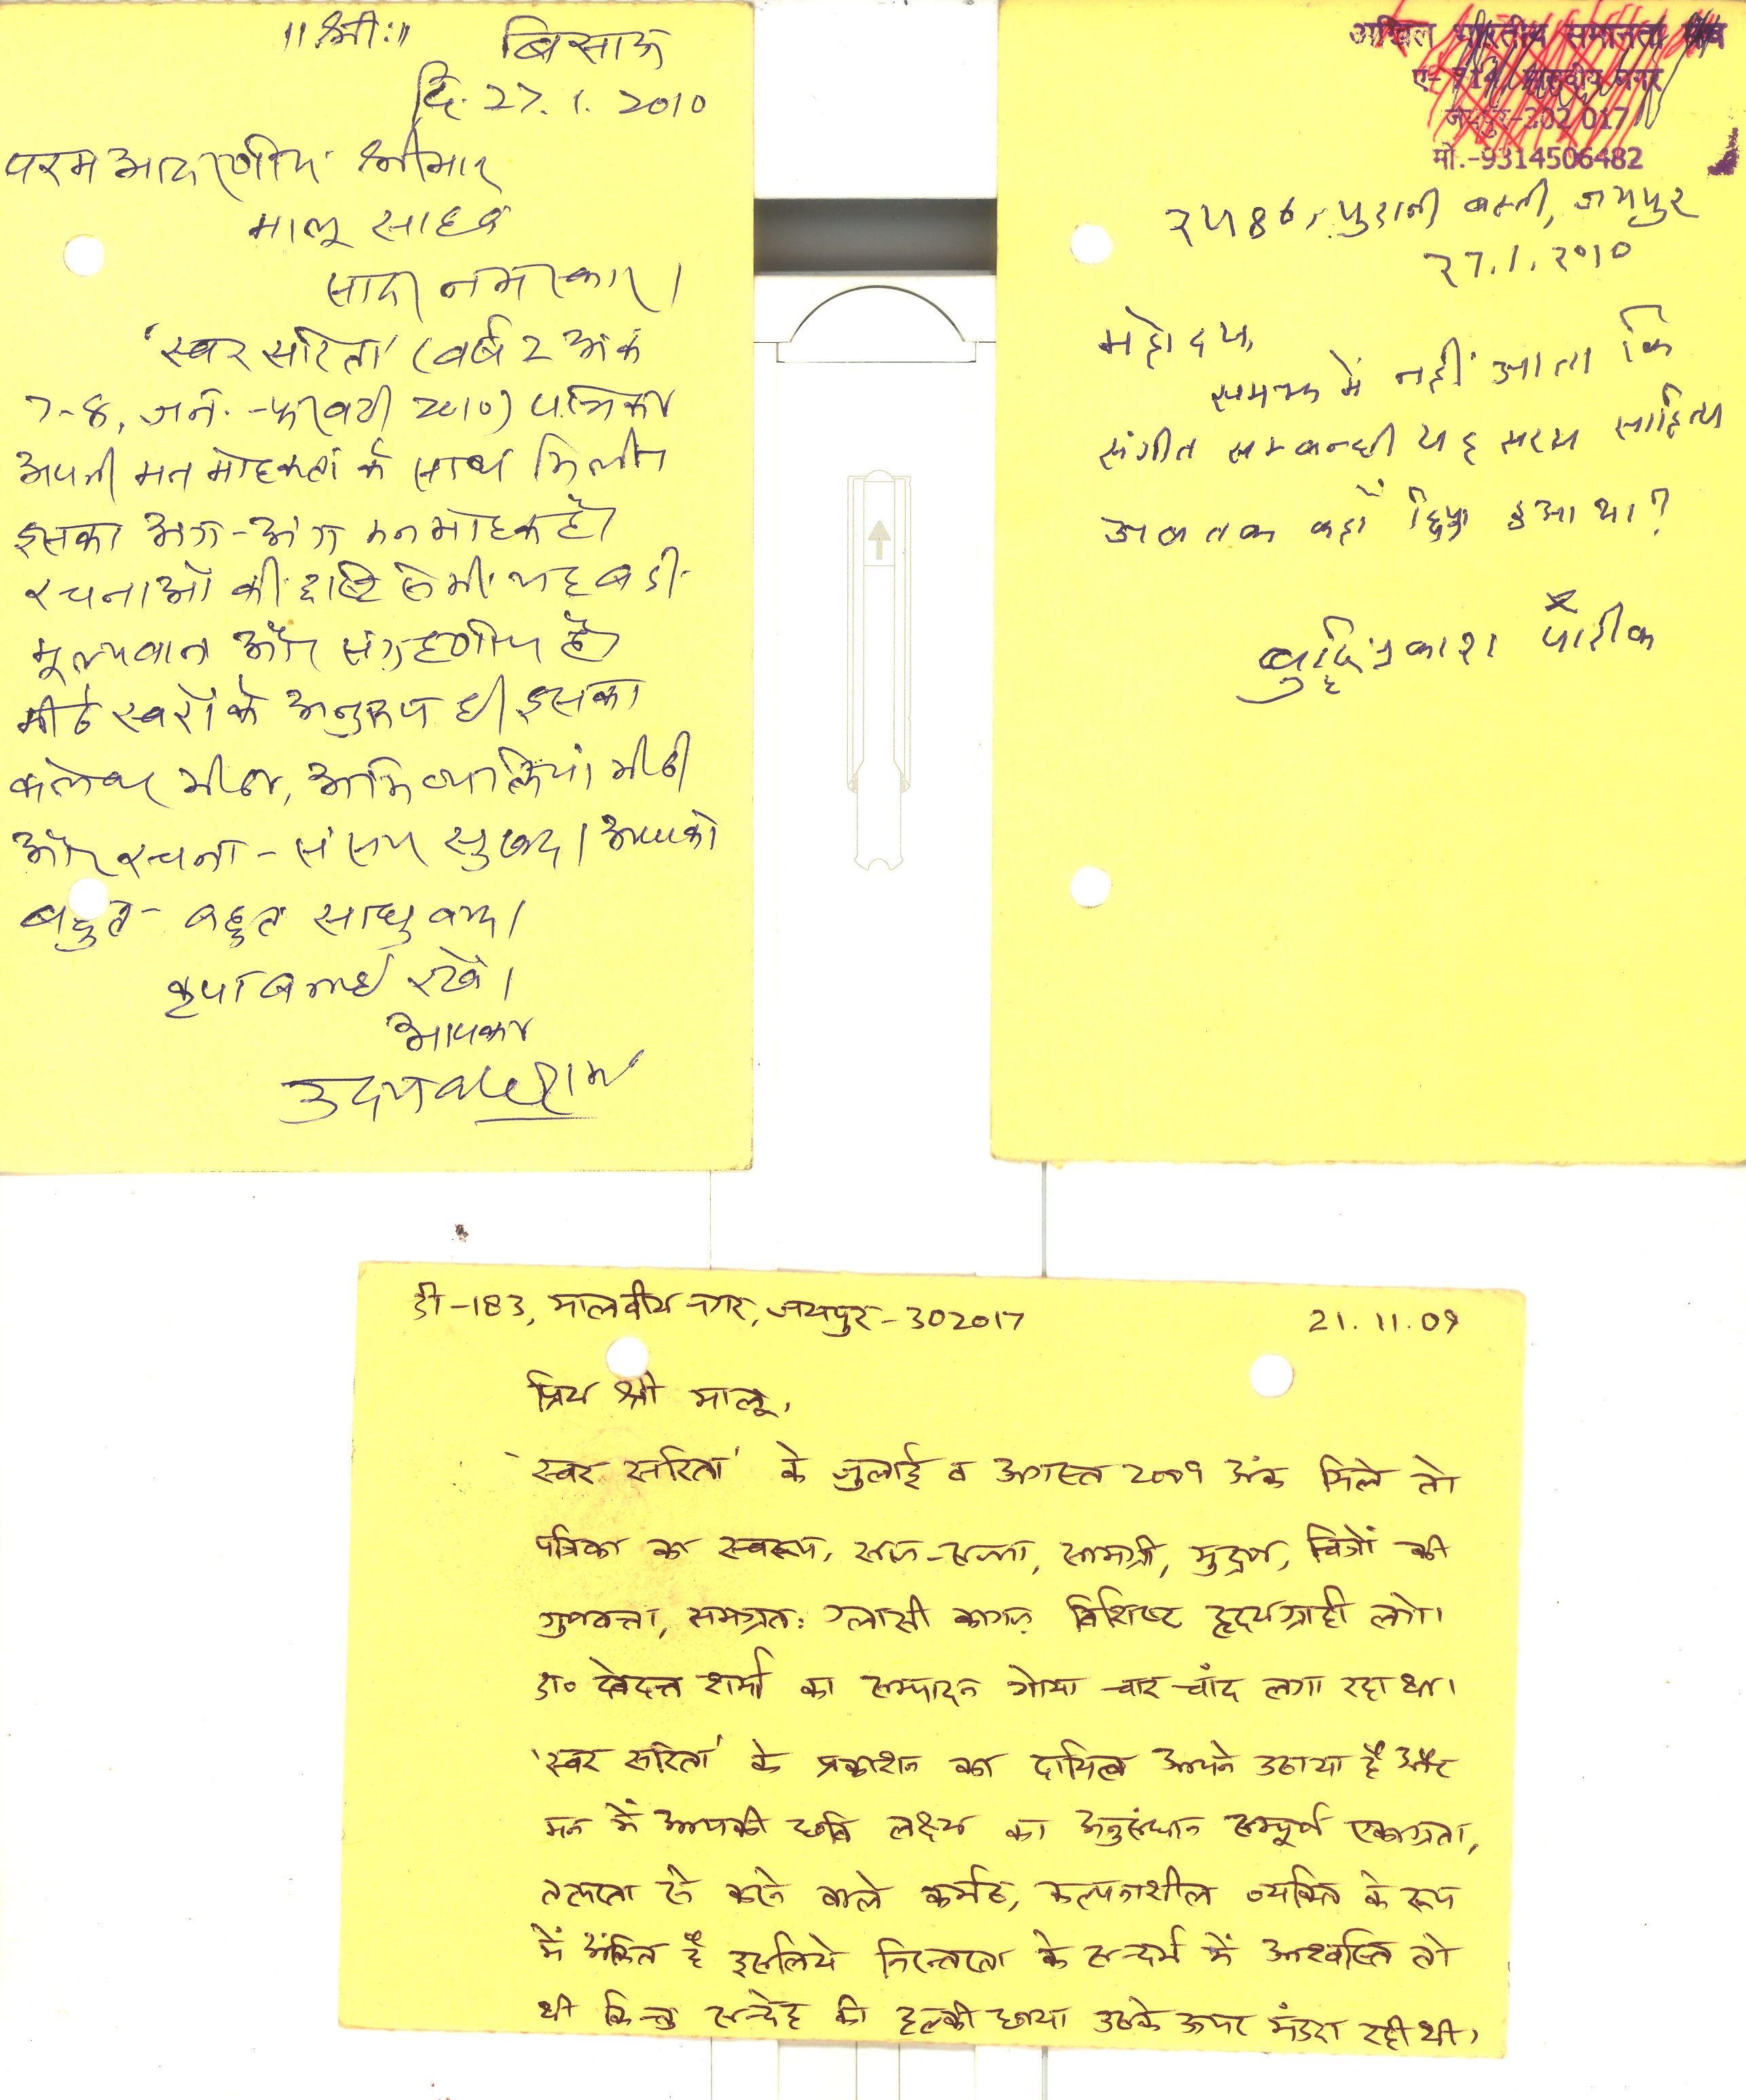 ॥श्रीः॥
बिसाऊ
दि. 27.1.2010
परम आदरणीय श्रीमान्
मालू साहब
सादर नमस्कार।
'स्वर सरिता' (वर्ष 2 अंक
7-8, जन.-फरवरी 2010) पत्रिका
अपनी मन मोहकता के साथ मिली।
इसका अंग-अंग मन मोहक है।
रचनाओं की दृष्टि से भी यह बड़ी
मूल्यवान और संग्रहणीय है।
मीठे स्वरों के अनुरूप ही इसका
कलेवर मीठा, अभिव्यक्तियां मीठी
और रचना-संसार सुखद। आपको
बहुत-बहुत साधुवाद।
कृपा बनाये रखें।
आपका
अखिल भारतीय समानता मंच
मालवीय नगर
मो.-9314506482
पुरानी बस्ती, जयपुर
27.1.2010
महोदय,
समझ में नहीं आता कि
संगीत सम्बन्धी यह सरस साहित्य
अब तक कहाँ छिपा हुआ था?
बुद्धिप्रकाश पारीक
डी-183, मालवीय नगर, जयपुर-302017
21.11.09
प्रिय श्री मालू,
'स्वर सरिता' के जुलाई व अगस्त 2009 अंक मिले तो
पत्रिका का स्वरूप, साज-सज्जा, सामग्री, मुद्रण, चित्रों की
गुणवत्ता, समग्रतः ग्लासी कागज़ विशिष्ट हृदयग्राही लगे।
डा० देवदत्त शर्मा का सम्पादन गोया चार चाँद लगा रहा था।
'स्वर सरिता' के प्रकाशन का दायित्व आपने उठाया है और
मन में आपकी छवि लक्ष्य का अनुसंधान सम्पूर्ण एकाग्रता,
तत्परता से करने वाले कर्मठ, कल्पनाशील व्यक्ति के रूप
में अंकित है इसलिये निरन्तरता के सन्दर्भ में आश्वस्ति तो
थी किन्तु सन्देह की हल्की छाया उसके ऊपर मंडरा रही थी।